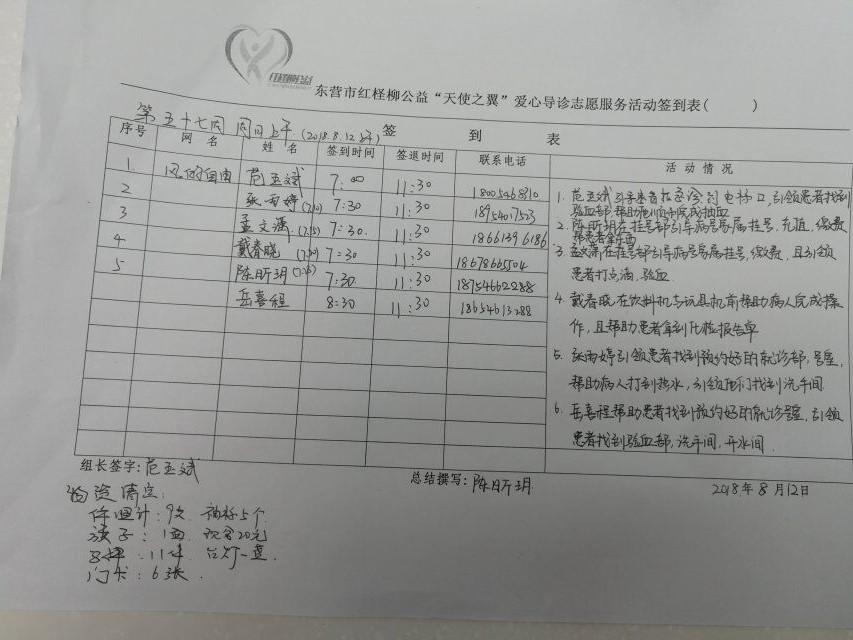 红柽柳公益
东营市红柽柳公益“天使之翼”爱心导诊志愿服务活动签到表( )
第五十七周 周日上午 (2018.8.12上午) 签 到 表
序号 网 名 姓 名 签到时间 签退时间 联系电话 活 动 情 况
1 风的自由 范玉斌 7:00 11:30
2 张雨婷 7:30 11:30 18954017523
3 孟文潇 7:30. 11:30 18661396186
4 戴春晓 7:30 11:30 18678665504
5 陈昕玥 7:30 11:30 18754662288
岳喜程 8:30 11:30 18654613288
1. 范玉斌引导患者找到诊室,电梯口,引领患者找到
验血部,帮助
2. 陈昕玥在挂号部引导病号家属挂号,充值,缴费
3. 孟文潇在挂号部引导病号家属挂号,缴费,且引领
患者打点滴,验血
4. 戴春晓在饮料机与玩具机前帮助病人完成操
作,且帮助患者拿到化验报告单
5. 张雨婷引领患者找到预约好的就诊部,号室,
帮助病人打到热水,引领他们找到洗手间
6. 岳喜程帮助患者找到预约好的就诊号室,引领
患者找到验血部,洗手间,开水间.
组长签字:范玉斌 总结撰写:陈昕玥 2018年8月12日
物资清点:
体温计:9支 袖标5个
旗子:1面 现金20元
:11件 台灯一盏
门卡:6张.